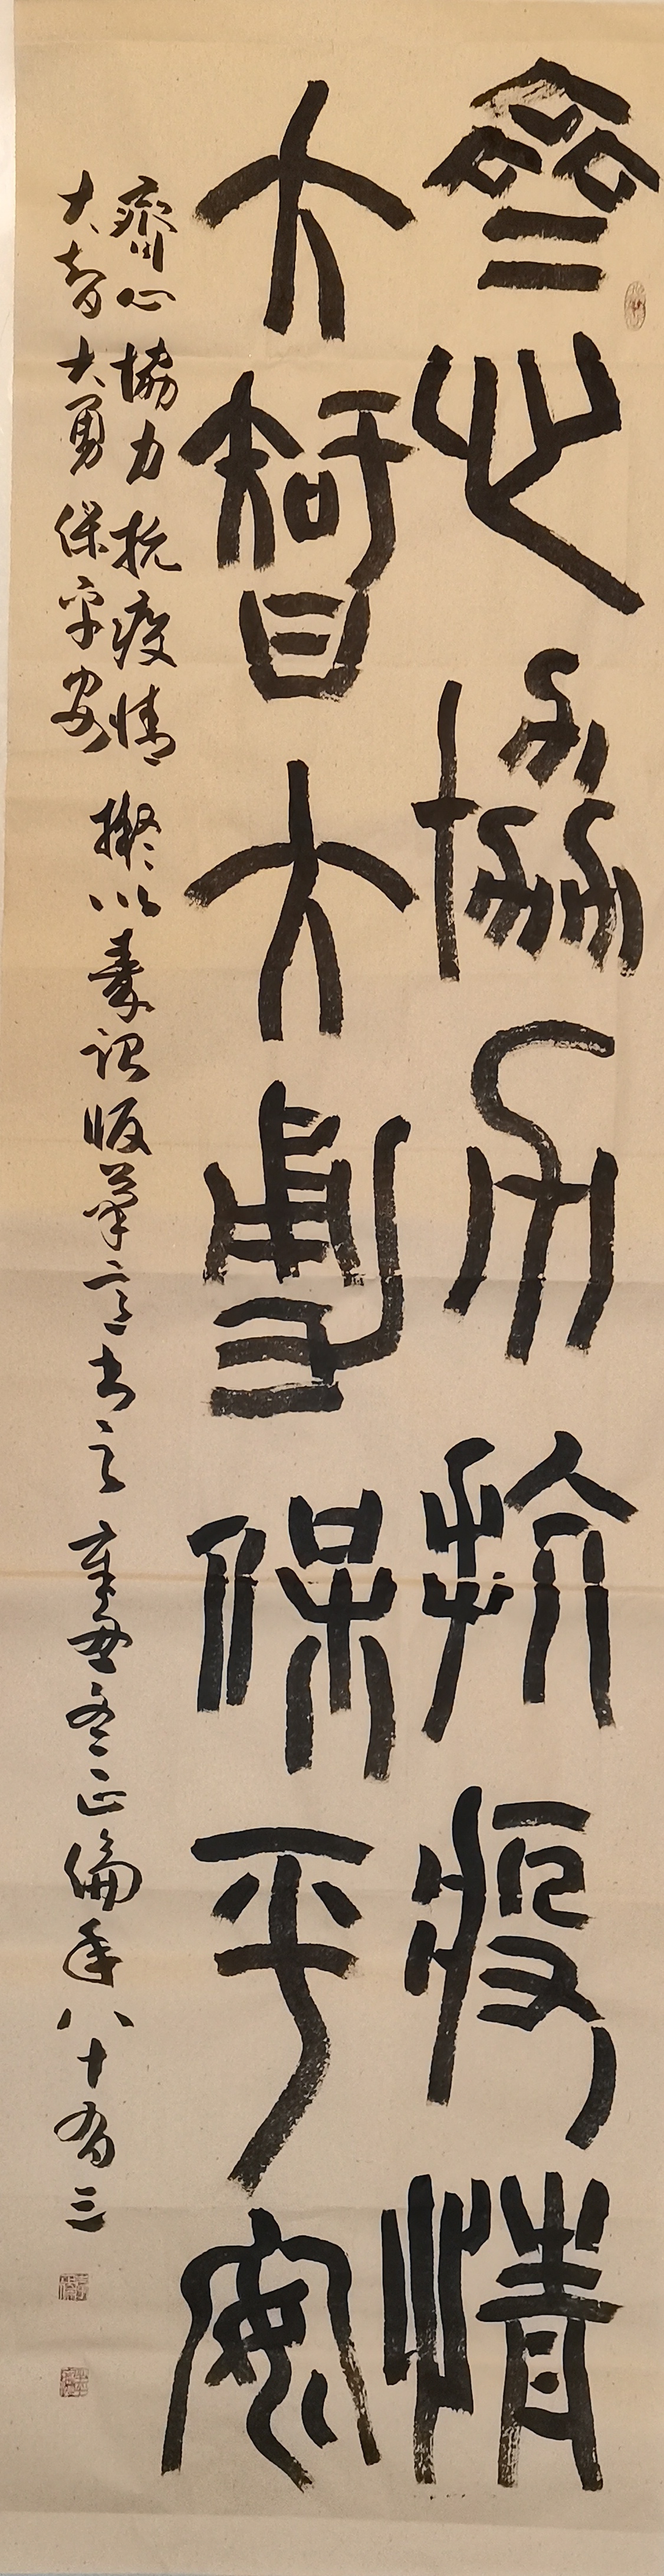 齊心協力抗疫情
大智大勇保平安
齊心協力抗疫情
大智大勇保平安
擬以秦詔版筆意書之 辛丑冬正倫年八十有三